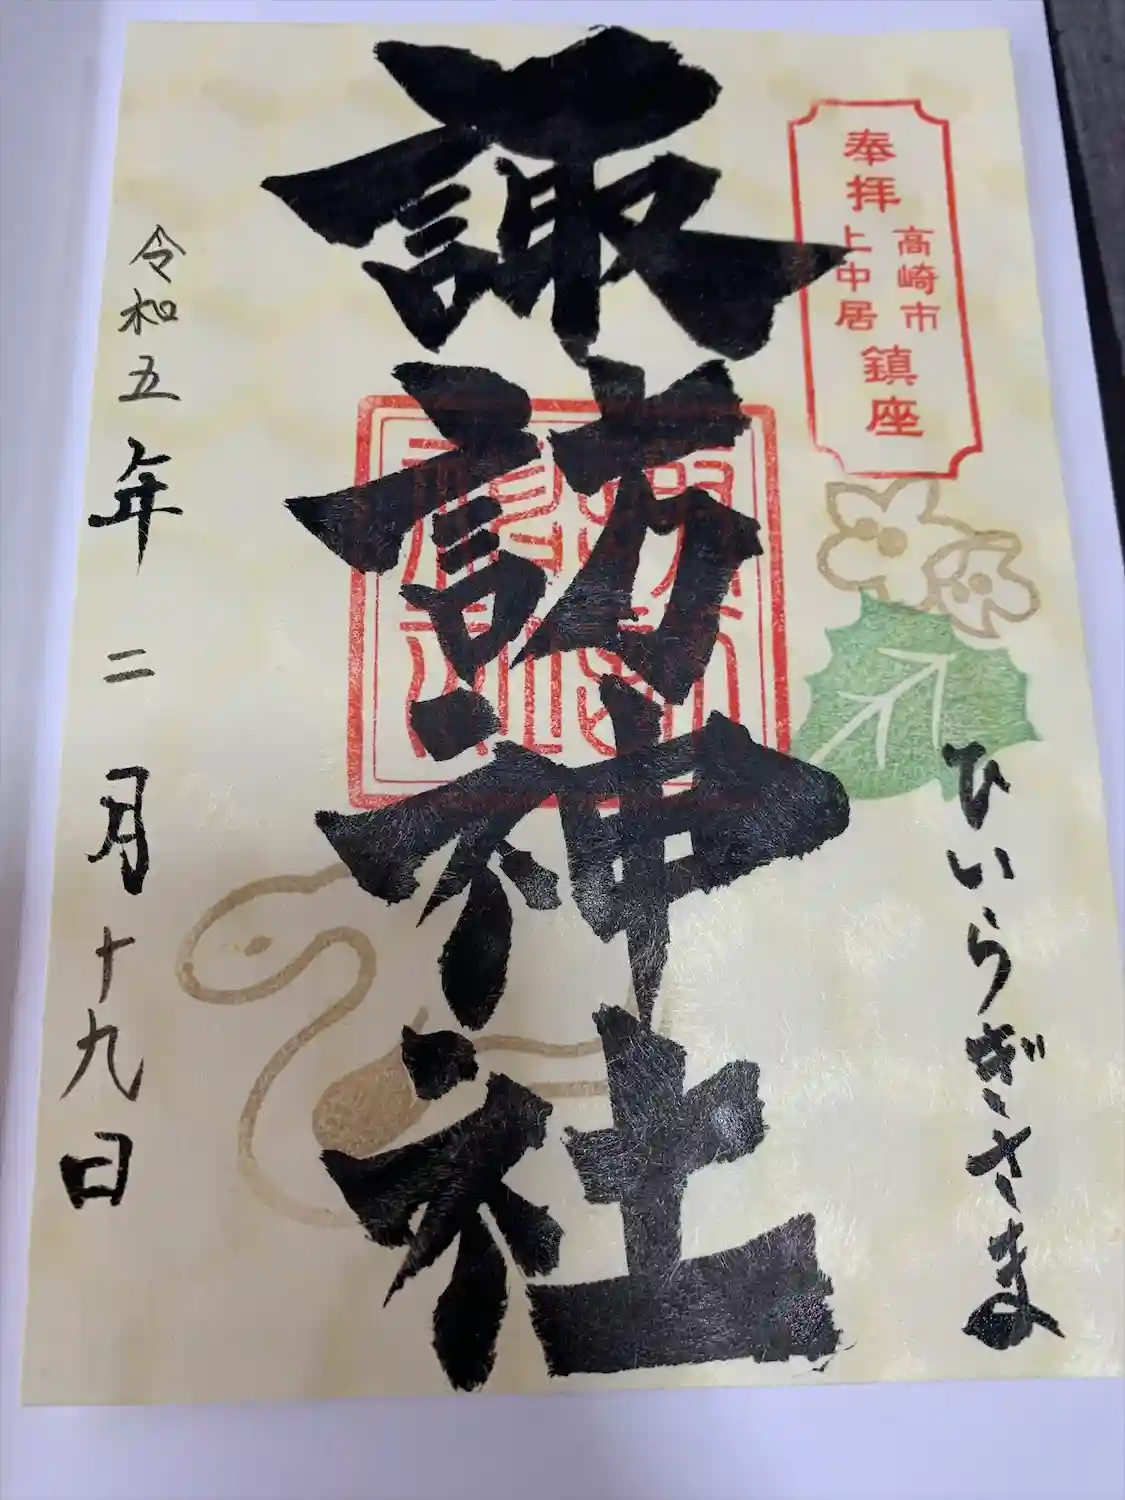 奉拝
高崎市
上中居
鎮座
ひいらぎさま
諏訪神社
令和五年二月十九日